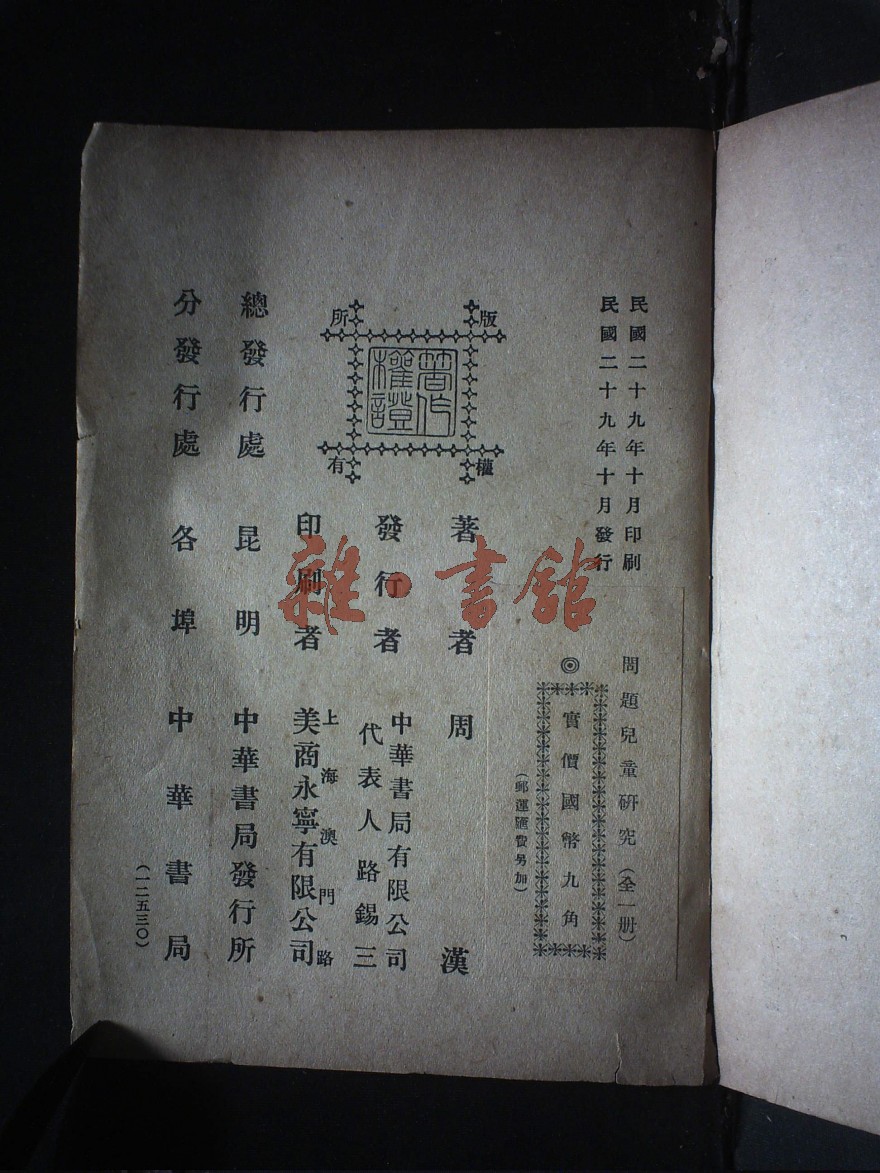 民國二十九年十月印刷
民國二十九年十月發行
問題兒童研究（全一册）
◎實價國幣九角
（郵運匯費另加）
版權所有
著作權證
著者 周漢
發行者 中華書局有限公司
代表人路錫三
印刷者 上海澳門路
美商永寧有限公司
總發行處 昆明 中華書局發行所
分發行處 各埠 中華書局
（一二五三〇）
雜·書舘